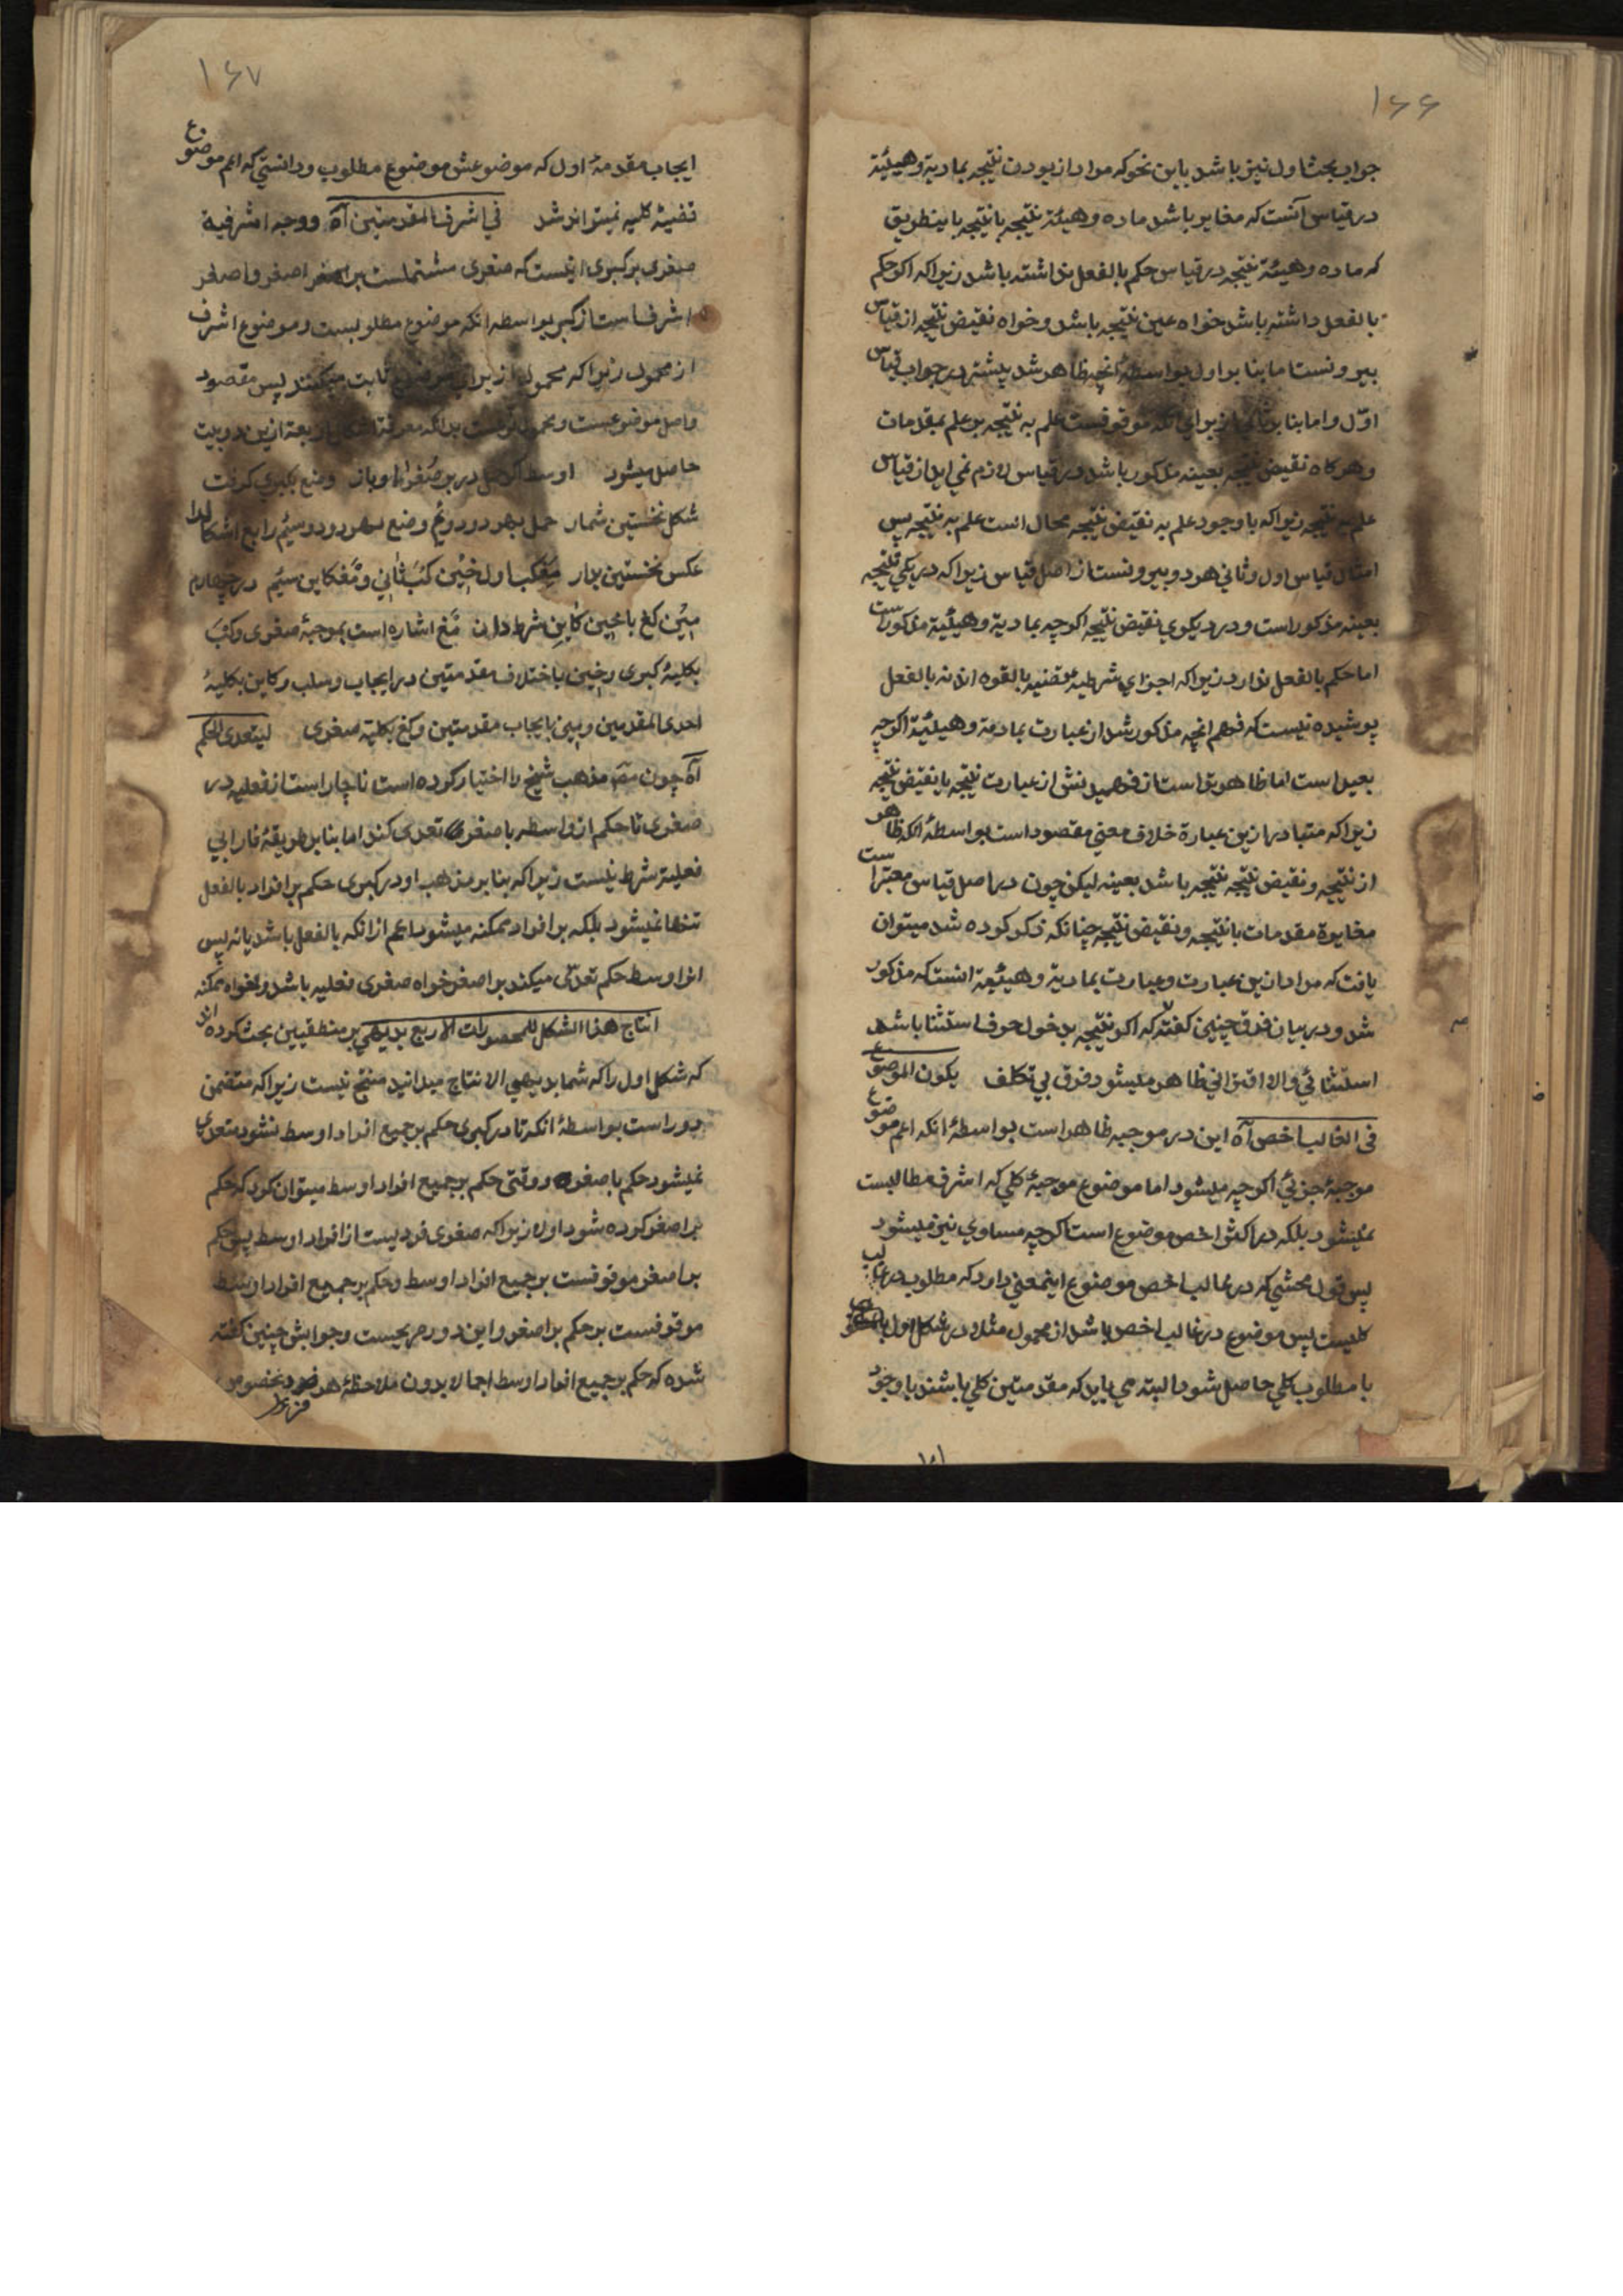 ۱۶۶
جواب بحث اول نیز باشد باین نحو که مراد از بودن نتیجه بمادیته و هیئته
در قیاس آنست که مغایر باشد ماده و هیئة نتیجه با نتیجه باینطریق
که ماده و هیئة نتیجه در قیاس حکم بالفعل نداشته باشد زیراکه اکر حکم
بالفعل داشته باشد خواه عین نتیجه باشد و خواه نقیض نتیجه از قیاس
بیرونست اما بنا بر اول بواسطهٔ آنچه ظاهر شد پیشتر در جواب قیاس
اوّل و اما بنا بر ثانی از برای آنکه موقوفست علم به نتیجه بر علم بمقدمات
و هرکاه نقیض نتیجه بعینه مذکور باشد در قیاس لازم نمی اید از قیاس
علم به نتیجه زیراکه با وجود علم به نقیض نتیجه محال است علم به نتیجه پس
امثال قیاس اول و ثانی هر دو بیرونست از اصل قیاس زیراکه در یکی نتیجه
بعینه مذکور است و در دیکری نقیض نتیجه اکرچه بمادیته و هیئیته مذکور است
اما حکم بالفعل ندارد زیراکه اجزای شرطیه قضیه بالقوه اند نه بالفعل
پوشیده نیست که فهم انچه مذکور شد از عبارت بمادته و هیئیته اکرچه
بعید است اما ظاهرتر است از فهمیدنش از عبارت نتیجه یا نقیض نتیجه
زیراکه متبادر ازین عبارة خلاف معنی مقصود است بواسطهٔ آنکه ظاهر
از نتیجه و نقیض نتیجه نتیجه باشد بعینه لیکن چون در اصل قیاس معتبر است
مغایرة مقدمات با نتیجه و نقیض نتیجه چنانکه ذکر کرده شد میتوان
یافت که مراد ازین عبارت و عبارت بمادیته و هیئیته انست که مذکور
شد و در بیان فرق چنین کفته که اکر نتیجه بدخول حرف استثنا باشد
استثنائی و الا اقترانی ظاهر میشود فرق بی تکلف یکون الموضوع
فی الغالب اخص آه این در موجبه ظاهر است بواسطهٔ انکه اعم موضوع
موجبهٔ جزئی اکرچه میشود اما موضوع موجبهٔ کلی که اشرف مطالبست
نمیشود بلکه در اکثر اخص موضوع است اکرچه مساوی نیز میشود
پس قول محشی که در غالب اخص موضوع اینمعنی دارد که مطلوب در غالب
کلیست پس موضوع در غالب اخص باشد از محمول مثلا در شکل اول
با مطلوب کلی حاصل شود البته می باید که مقدمتین کلی باشند با وجود
۱۶۷
ایجاب مقدمهٔ اول که موضوعش موضوع مطلوب و دانستی که اعم موضوع
قضیهٔ کلیه نمیتواند شد فی اشرف المقدمتین آه و وجه اشرفیة
صغری بر کبری اینست که صغری مشتملست بر اصغر و اصغر
اشرف است از کبری بواسطه انکه موضوع مطلوبست و موضوع اشرف
از محمول زیراکه محمول از برای موضوع ثابت میکنند پس مقصود
و اصل موضوعست و محمول بدانکه معرفة اشکال اربعة ازین دو بیت
حاصل میشود اوسط اکر حمل در بر صُغرا و باز وضع بکبری کرفت
شکل نخستین شمار حمل بهر دو دویُم وضع بهر دو سیُم رابع اشکال را
عکس نخستین بدار مَغکب اول خیْن کَبْ ثانی و مَغ کاین سیُم در چهارم
میْن کغ یا خیْن کاین شرط دان مَغ اشاره است بموجبهٔ صغری و کَبْ
بکلیهٔ کبری و خین باختلاف مقدمتین در ایجاب و سلب و کاین بکلیهٔ
احدی المقدمین و مین بایجاب مقدمتین و کغ بکلیته صغری لیتعدی الحکم
آه چون مص مذهب شیخ را اختیار کرده است ناچار است از فعلیه در
صغری تا حکم از واسطه باصغر تعدی کند اما بنا بر طریقهٔ فارابی
فعلیته شرط نیست زیراکه بنا بر مذهب او در کبری حکم بر افراد بالفعل
تنها نمیشود بلکه بر افراد ممکنه میشود اعم از انکه بالفعل باشد یا نه پس
از اوسط حکم تعدّی میکند بر اصغر خواه صغری فعلیه باشد و خواه ممکنه
انتاج هذا الشکل للمحصورات الاربع بدیهی بر منطقیین بحث کرده اند
که شکل اول را که شما بدیهی الانتاج میدانید منتج نیست زیراکه متضمن
دور است بواسطهٔ انکه تا در کبری حکم بر جمیع افراد اوسط نشود متعدی
نمیشود حکم باصغر و وقتی حکم بر جمیع افراد اوسط میتوان کرد که حکم
بر اصغر کرده شود اولا زیراکه صغری فردیست از افراد اوسط پس حکم
بر اصغر موقوفست بر جمیع افراد اوسط و حکم بر جمیع افراد اوسط
موقوفست بر حکم بر اصغر و این دور صریحست و جوابش چنین کفته
شده که حکم بر جمیع افراد اوسط اجمالا بدون ملاحظهٔ هر فرد بخصوص